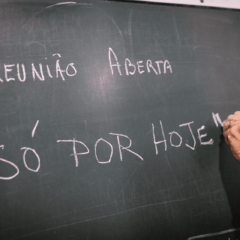 REUNIÃO ABERTA
SÓ POR HOJE"